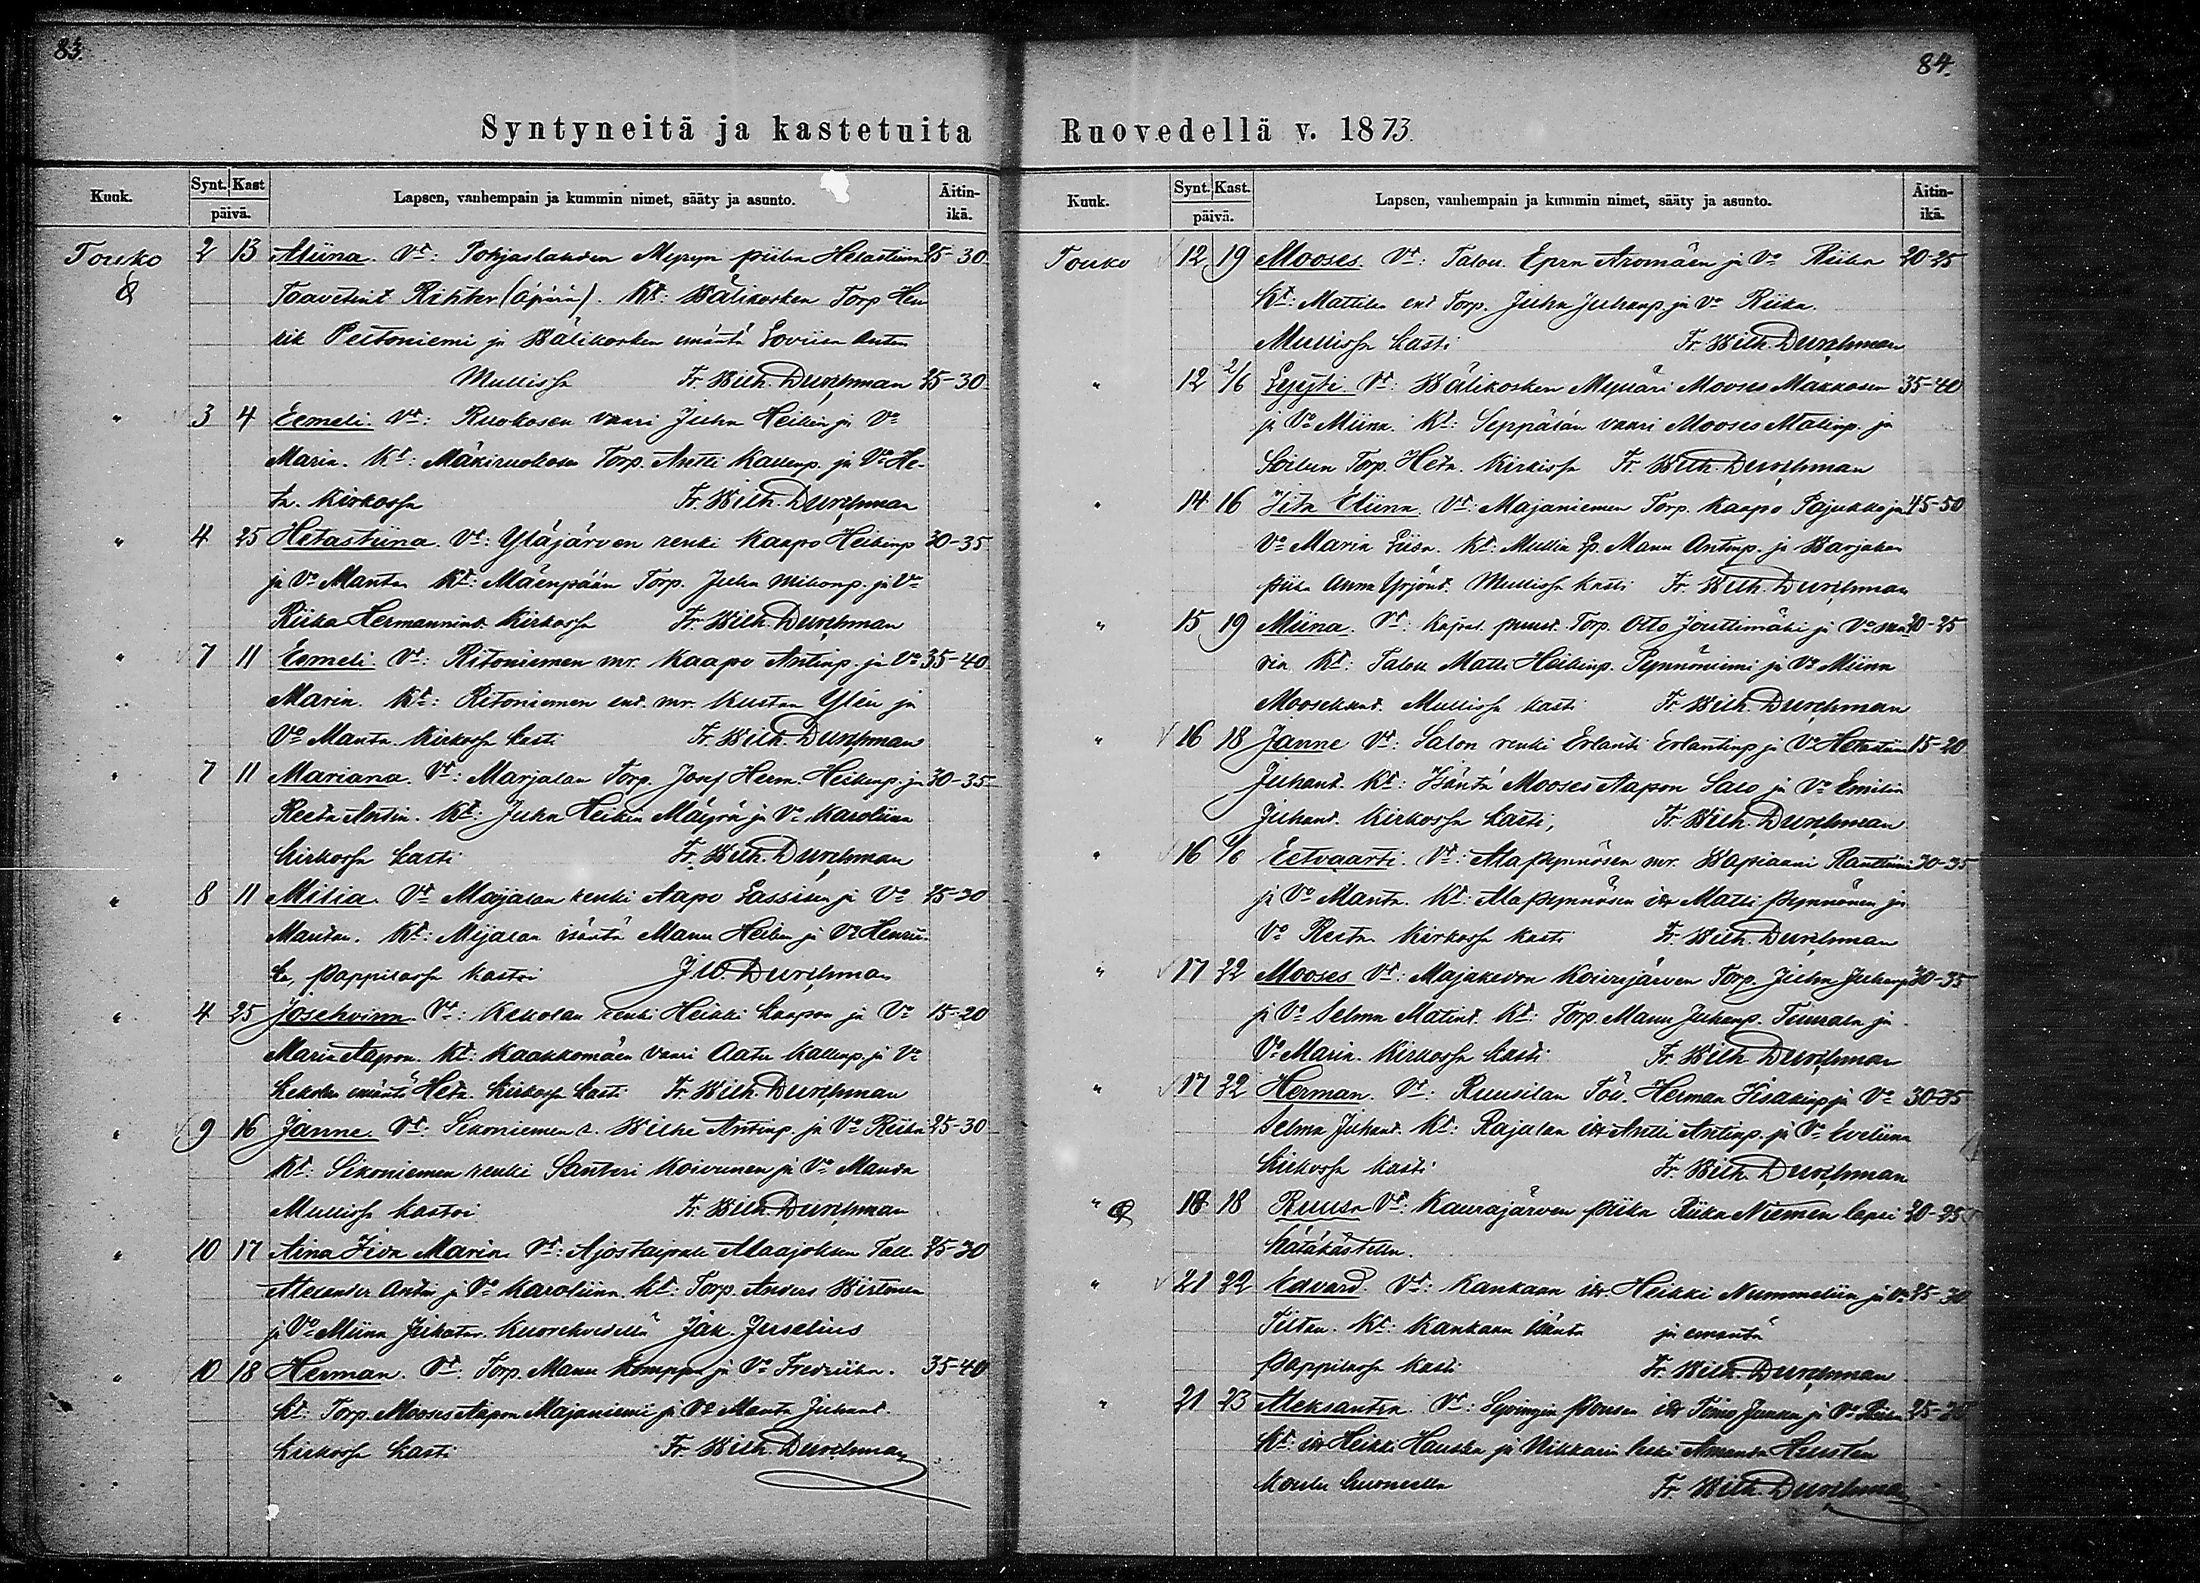 83.
Syntyneitä ja kastetuita
Kuuk.
Synt. Kast
päivä.
Lapsen, vanhempain ja kummin nimet, sääty ja asunto.
Äitin-
ikä.
Touko 2 13 Miina. Vt: Pohjaslahden Myryn piika Hetastiina 25-30
Taavetint Rihter (äpärä). Kt: Wälikosken Torp Hen
rik Peltoniemi ja Wälikosken emäntä Loviisa Antin
Mullissa Fr. Wilh. Durchman 25-30
" 3 4 Eemeli. Vt: Ruokosen vaari Juha Heikin ja Vo
Maria. Kt: Mäkiruokosen Torp. Antti Kallenp. ja Vo He-
ta. Kirkossa Fr. Wilh. Durchman
" 4 25 Hetastiina. Vt: Yläjärven renki Kaapo Heikinp 30-35
ja Vo Manta Kt: Mäenpään Torp. Juha Mikonp. ja Vo
Riika Hermannint. Kirkossa Fr. Wilh. Durchman
" 7 11 Eemeli. Vt: Ritoniemen mr. Kaapo Antinp. ja Vo 35-40
Maria. Kt: Ritoniemen ent. mr. Kustaa Ylén ja
Vo Manta. Kirkossa kasti Fr. Wilh. Durchman
" 7 11 Mariana. Vt: Marjalan Torp. Josef Herm. Heikinp. ja 30-35
Reeta Antin. Kt: Juha Heikin Mäyrä ja Vo Karoliina
Kirkossa kasti Fr. Wilh. Durchman
" 8 11 Milia. Vt Majalan renki Aapo Lassinen ja Vo 25-30
Mantan. Kt: isäntä Manu Heikin ja Vo Henrii-
ka, Pappilassa kastoi J. W. Durchman
" 4 25 Josehviina. Vt: Kekolan renki Heikki Kaapon ja Vo 15-20
Maria Aapon. Kt: Kaakkomäen vaari Aatu Kallenp. ja Vo
Kekolan emäntä Heta. Kirkossa kasti Fr. Wilh. Durchman
" 9 16 Janne. Vt: Sikoniemen r. Wilhe Antinp. ja Vo Riika 25-30
Kt: Sikoniemen renki Santeri Koivunen ja Vo Manta
Mullissa kastoi Fr. Wilh. Durchman
" 10 17 Aina Iida Maria. Vt: Alaajoksen Tall. 25-30
Alexander Antin ja Vo Karoliina. Kt: Torp. Anders Wirtanen
ja Vo Miina Kuorehvedellä Jak. Juselius
" 10 18 Herman. Vt: Torp. Manu Komppa ja Vo Fredriika. 35-40
Kt: Torp. Mooses Aapon Majaniemi ja Vo Manta Juhant.
Kirkossa kasti Fr. Wilh. Durchman
84.
Ruovedellä v. 1873.
Kuuk.
Synt. Kast.
päivä.
Lapsen, vanhempain ja kummin nimet, sääty ja asunto.
Äitin-
ikä.
Touko 12 19 Mooses. Vt: Talou. Epra Aromäen ja Vo Riika 20-25
Kt: Mattilan ent Torp. Juha Juhanp. ja Vo Riika.
Mullissa kasti Fr. Wilh. Durchman
" 12 2/6 Vt: Wälikosken Mylläri Mooses Makkosen 35-40
ja Vo Miina. Kt: Seppälän vaari Mooses Matinp. ja
Torp. Heta. Kirkossa Fr. Wilh. Durchman
" 14 16 Iita Eliina. Vt: Majaniemen Torp. Kaapo Pajukko ja 45-50
Vo Maria Liisa. Kt: Mullin Manu Antinp. ja
piika Anna Yrjönt. Mullissa kasti Fr. Wilh. Durchman
" 15 19 Miina. Vt: Torp. Otto Jouttimäki ja Vo Ma- 20-25
ria Kt: Talou. Matti Heikinp. Pynnöniemi ja Vo Miina
Mooseksent. Mullissa kasti Fr. Wilh. Durchman
" 16 18 Janne Vt: Salon renki Erlanti Erlantinp ja Vo Hetastiina 15-20
Juhant. Kt: Isäntä Mooses Aapon Salo ja Vo Emilia
Juhant. Kirkossa kasti, Fr. Wilh. Durchman
" 16 1/6 Eetvaarti. Vt: Alapynnösen mr. Rantiini 30-35
ja Vo Manta. Kt: Alapynnösen isr Matti Pynnönen ja
Vo Reeta Kirkossa kasti Fr. Wilh. Durchman
" 17 22 Mooses Vt: Majakevon Koirajärven Torp. Juha Juhanp 30-35
ja Vo Selma Matint. Kt: Torp. Manu Juhanp. Tuurala ja
Vo Maria. Kirkossa kasti Fr. Wilh. Durchman
" 17 22 Herman. Vt: Ruusilan Töll. Herman Iisakinp ja Vo 30-35
Selma Juhant. Kt: Rajalan isr Antti Antinp. ja Vo Eveliina
Kirkossa kasti Fr. Wilh. Durchman
" 18 18 Ruusa Vt: Kaurajärven piika Riika Niemen lapsi 20-25
Hätäkastettu.
" 21 22 Edvard. Vt: Kankaan isr. Heikki Nummeliin ja Vo 25-30
Tiltan. Kt: Kankaan isäntä ja emäntä
Pappilassa kasti Fr. Wilh. Durchman
" 21 23 Aleksantra. Vt: Syvingin Pousan isr Timo Junka ja Vo Riika 25-30
Kt: isr Heikki Hauska ja Nikkarin leski Amanda Hurstan
Fr. Wilh. Durchman